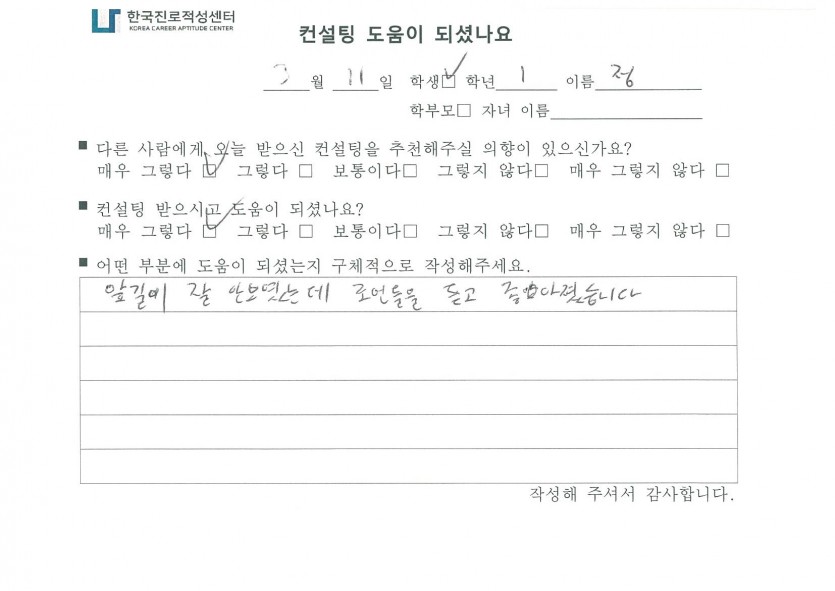 한국진로적성센터
KOREA CAREER APTITUDE CENTER
컨설팅 도움이 되셨나요
3월 11일 학생☑ 학년 1 이름 정
학부모□ 자녀 이름
■ 다른 사람에게 오늘 받으신 컨설팅을 추천해주실 의향이 있으신가요?
매우 그렇다 ☑ 그렇다 □ 보통이다□ 그렇지 않다□ 매우 그렇지 않다 □
■ 컨설팅 받으시고 도움이 되셨나요?
매우 그렇다 ☑ 그렇다 □ 보통이다□ 그렇지 않다□ 매우 그렇지 않다 □
■ 어떤 부분에 도움이 되셨는지 구체적으로 작성해주세요.
앞길이 잘 안보였는데 조언들을 듣고 좋아졌습니다
작성해 주셔서 감사합니다.